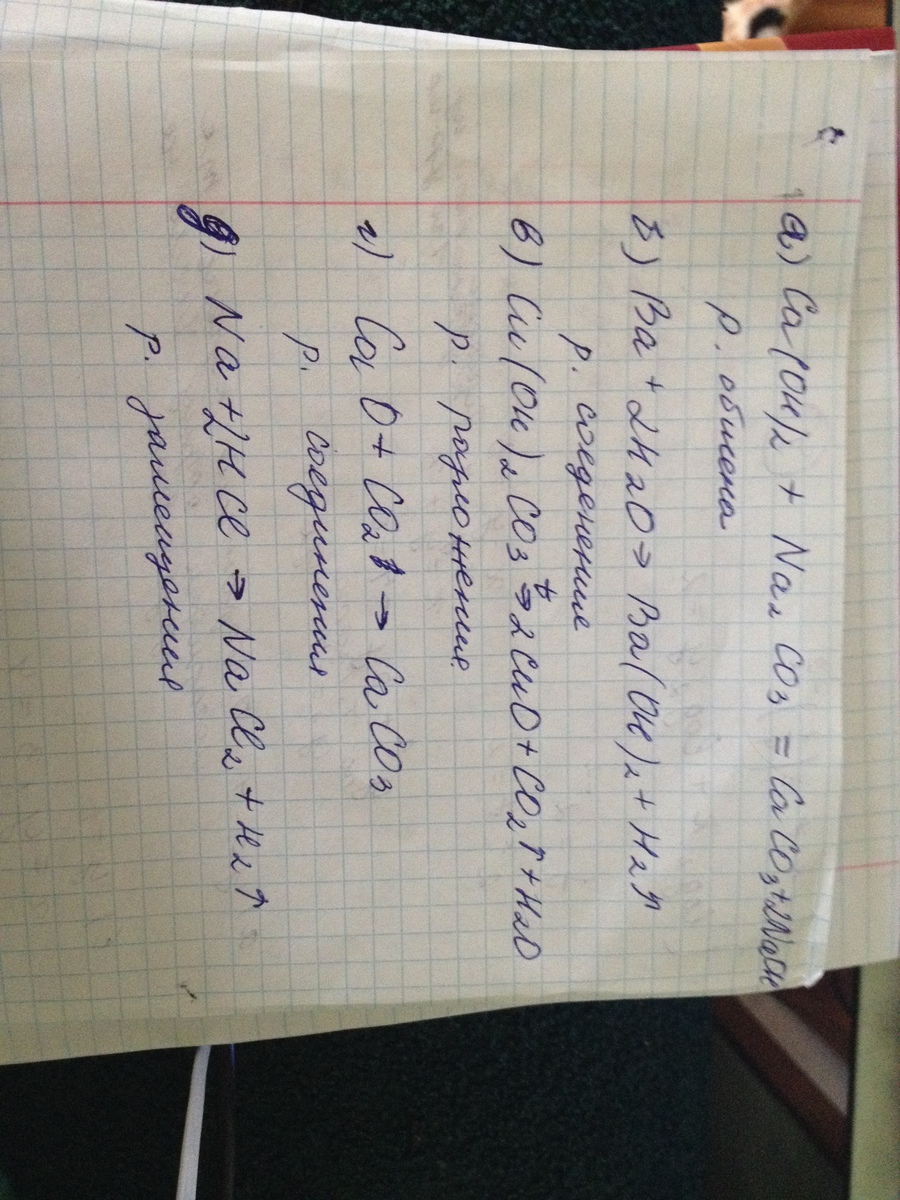 а) Ca(OH)2 + Na2CO3 = CaCO3+2NaOH
р. обмена
б) Ba + 2H2O → Ba(OH)2 + H2↑
р. соеденение
в) Cu(OH)2CO3 t→ 2CuO + CO2↑ + H2O
р. разложения
г) CaO + CO2 → CaCO3
р. соединения
д) Na + 2HCl → NaCl2 + H2↑
р. замещения